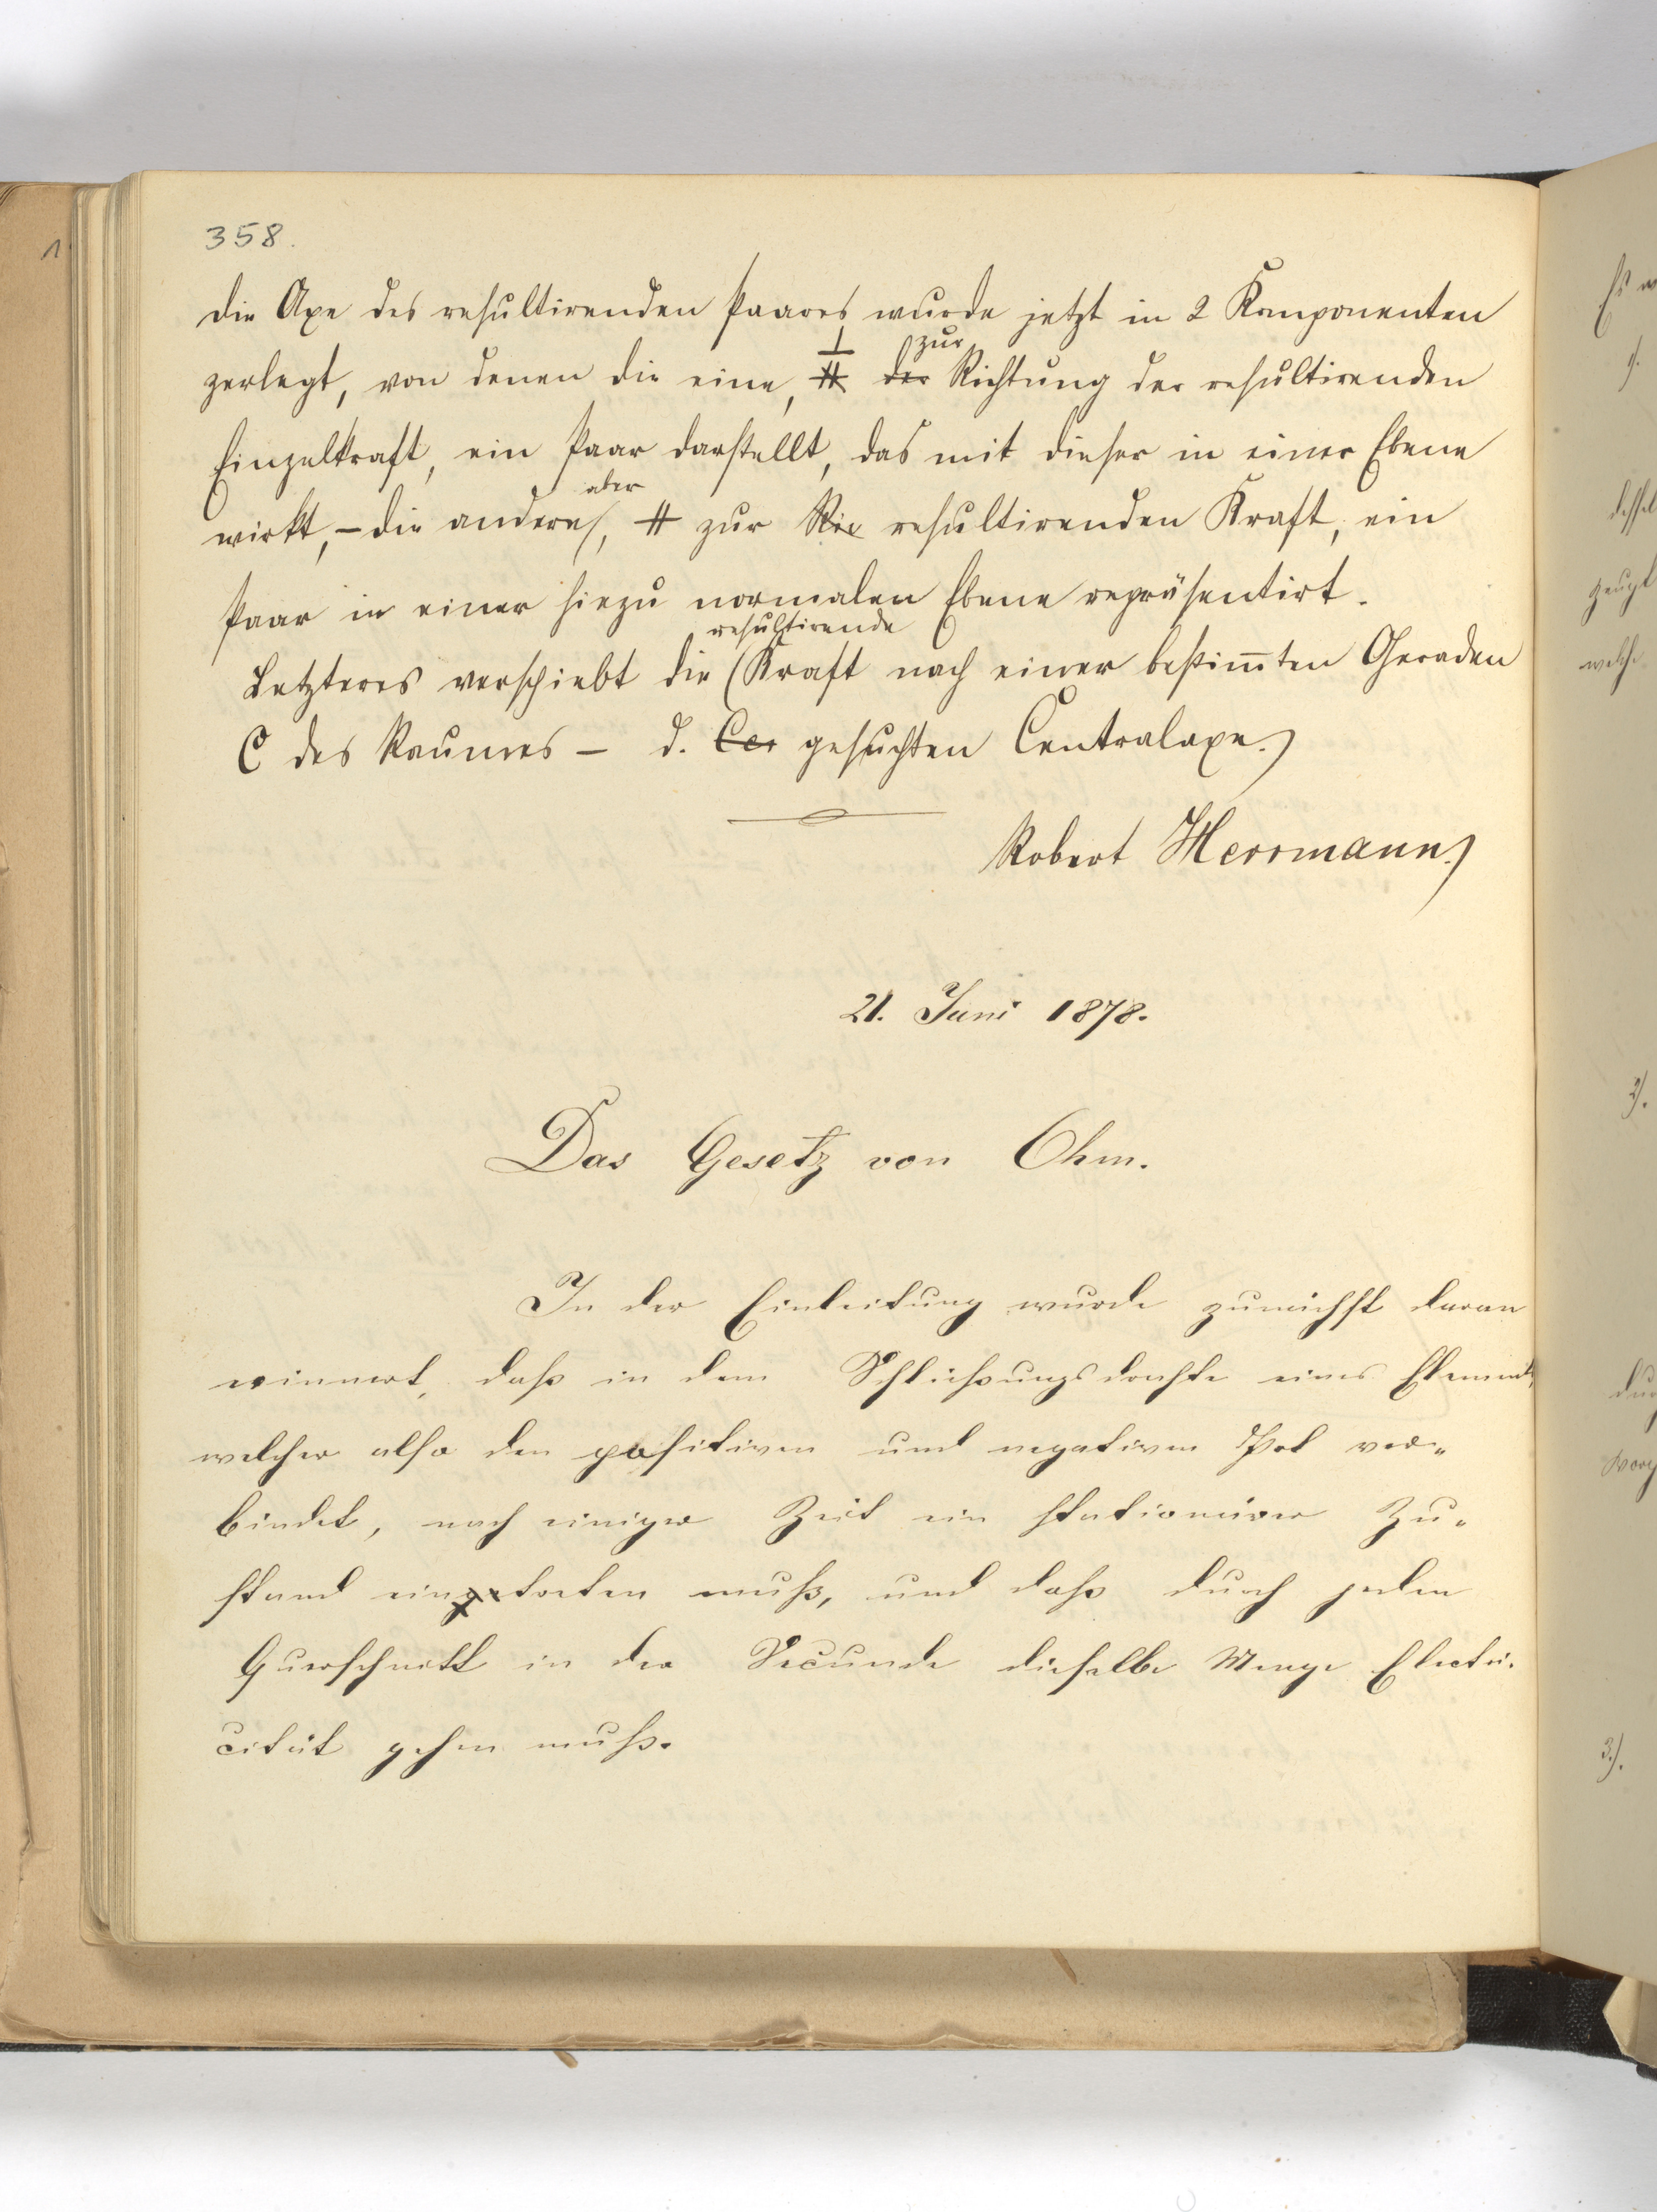 358.
Die Axe des resultirenden Paares wurde jetzt in 2 Komponenten
⊥ zur
zerlegt, von denen die eine, # der Richtung der resultirenden
Einzelkraft, ein Paar darstellt, das mit dieser in einer Ebene
aber
wirkt, – die andere, # zur Ric resultirenden Kraft, ein
Paar in einer hiezu normalen Ebene repräsentirt.
resultirende
Letzteres verschiebt die (Kraft nach einer bestim̄ten Geraden
C des Raumes – d. Cer gesuchten Centralaxe.
Robert Herrmann.
21. Juni 1878.
Das Gesetz von Ohm.
In der Einleitung wurde zunächst daran
erinnert, daß in dem Schließungsdrahte eines Elements,
welcher also den positiven und negativen Pol ver„
bindet, nach einiger Zeit ein stationärer Zu„
stand eingetreten muß, und daß durch jeden
Querschnitt in der Secunde dieselbe Menge Electri„
cität gehen muß.